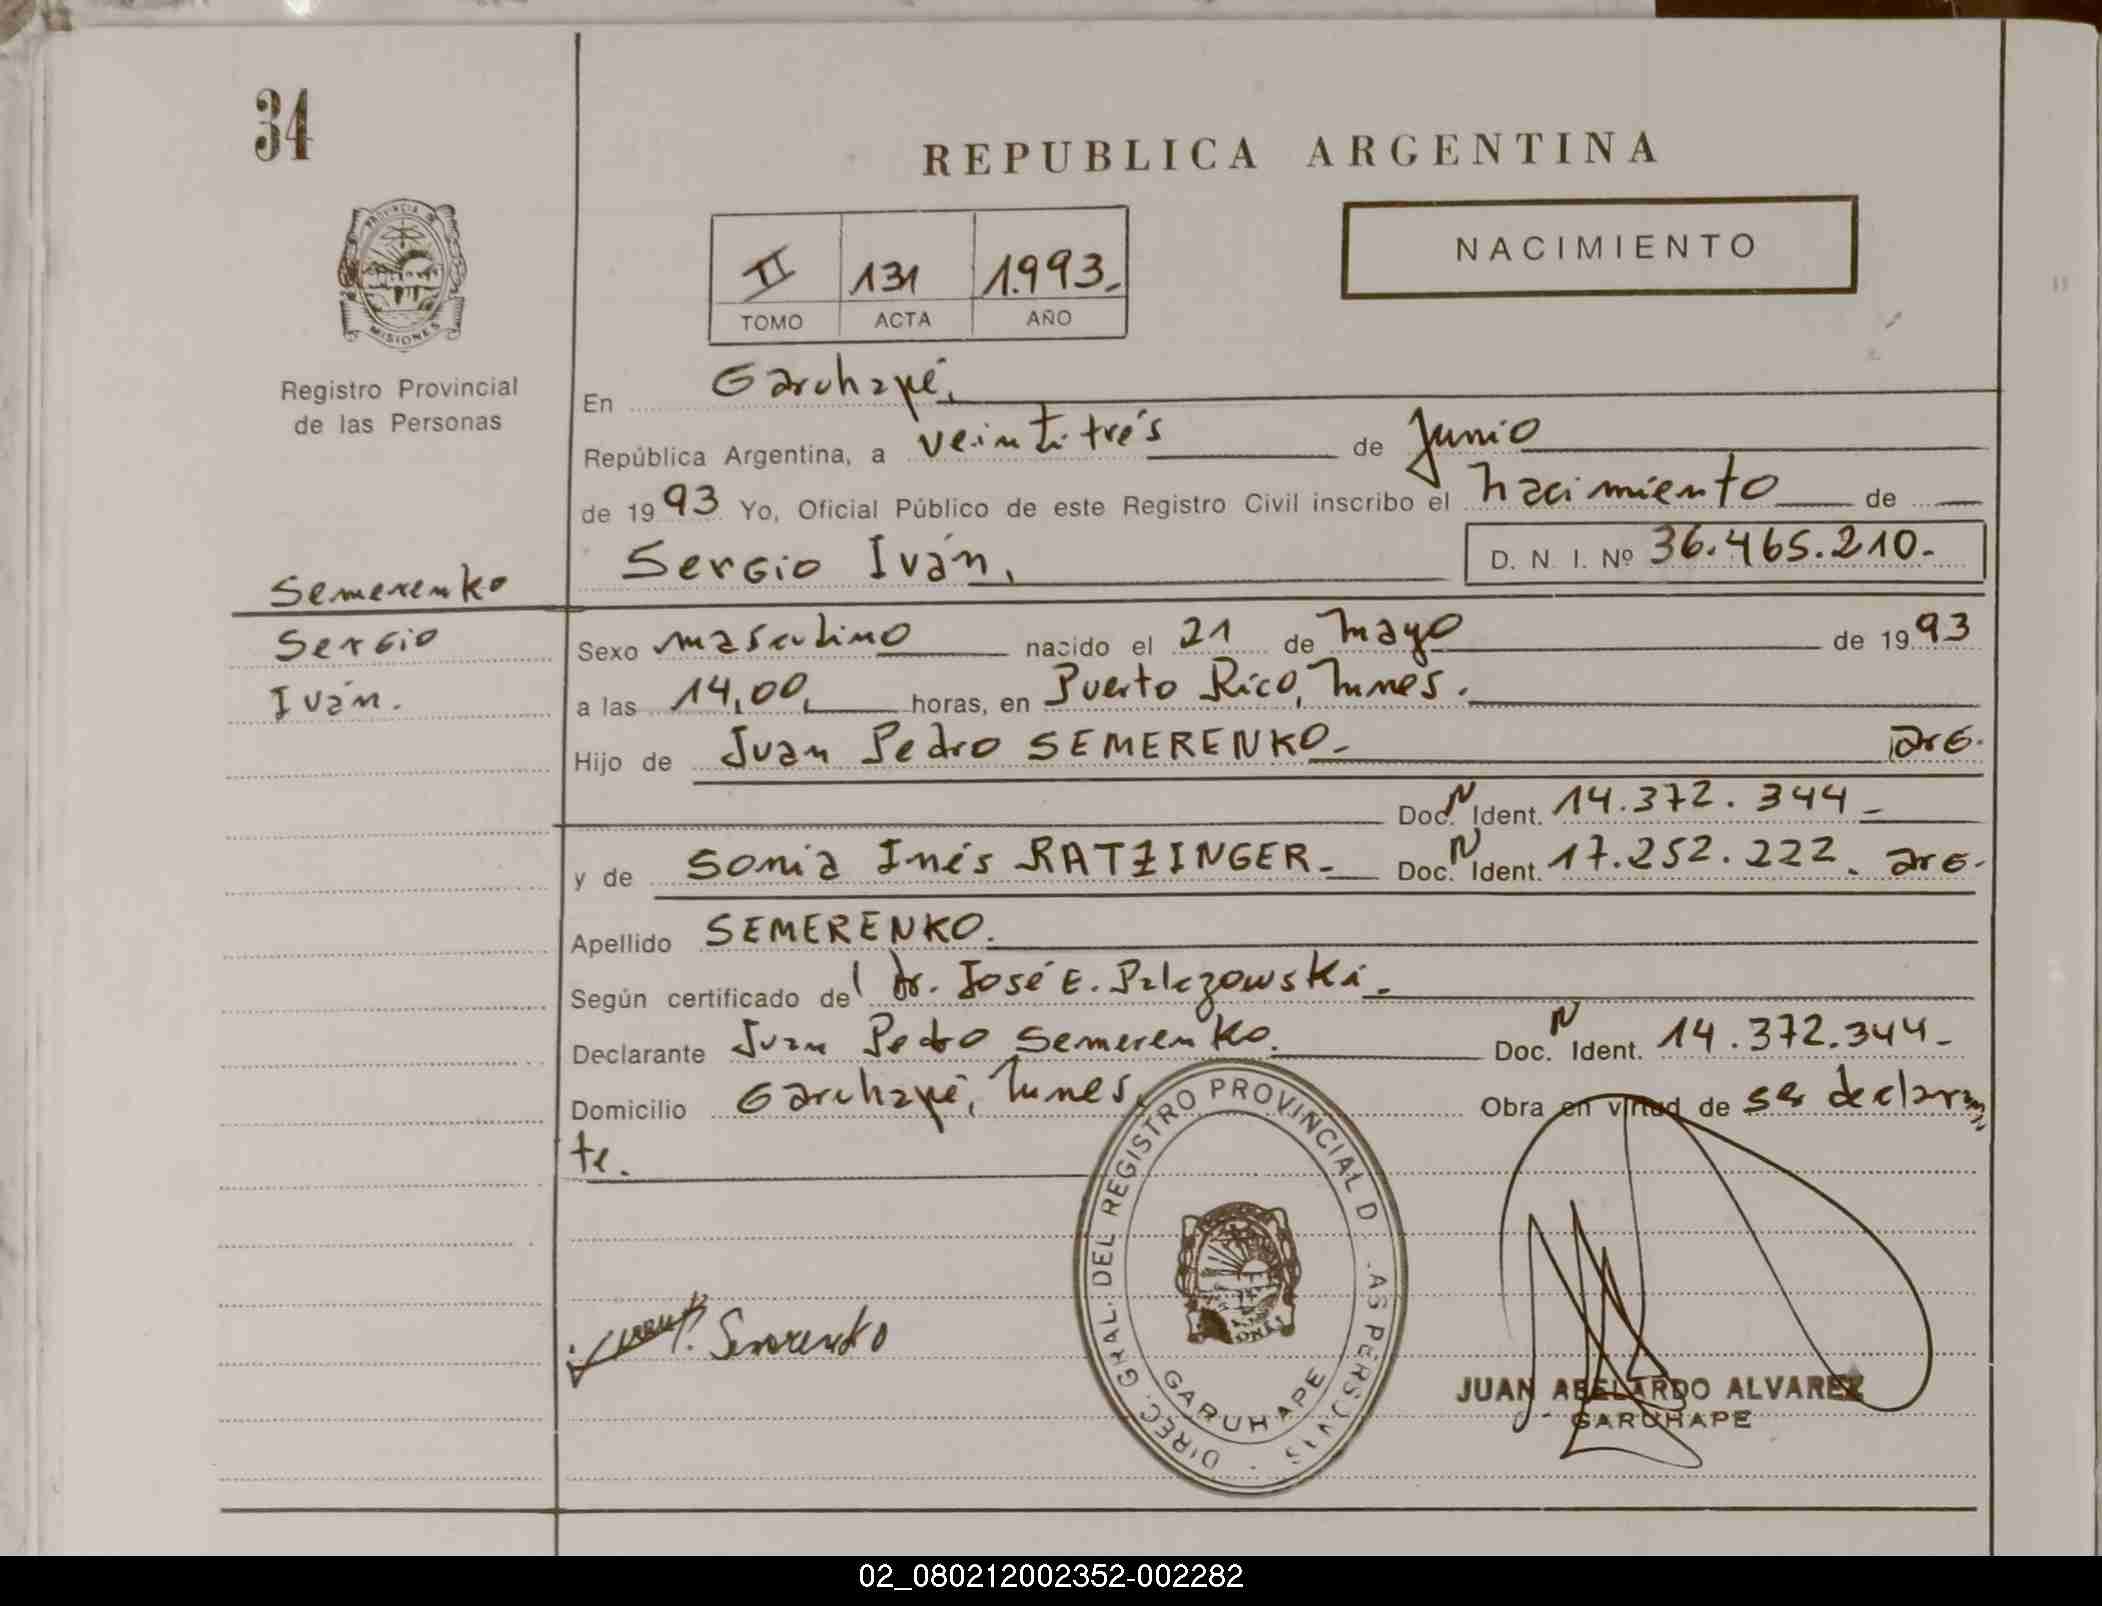 34
REPUBLICA ARGENTINA
PROVINCIA DE
MISIONES
NACIMIENTO
II 131 1.993.-
TOMO ACTA AÑO
Registro Provincial
de las Personas
En Garuhapé,
República Argentina, a veintitrés de Junio
de 19 93 Yo, Oficial Público de este Registro Civil inscribo el nacimiento de
Sergio Iván, D. N. I. Nº 36.465.210.-
Semerenko
Sergio
Iván.
Sexo masculino nacido el 21 de mayo de 19 93
a las 14,00, horas, en Puerto Rico, Mnes.
Hijo de Juan Pedro SEMERENKO.- arg.
Doc. N Ident. 14.372.344-
y de Sonia Inés RATZINGER.- Doc. N Ident. 17.252.222. arg.
Apellido SEMERENKO.
Según certificado de Dr. José E. Palczowski.-
Declarante Juan Pedro Semerenko. Doc. N Ident. 14.372.344-
Domicilio Garuhapé, Mnes, Obra en virtud de ser declaran
te.
DIREC. GRAL. DEL REGISTRO PROVINCIAL D AS PERS
GARUHAPE
P. Semerenko
JUAN ABELARDO ALVAREZ
GARUHAPE
02_080212002352-002282